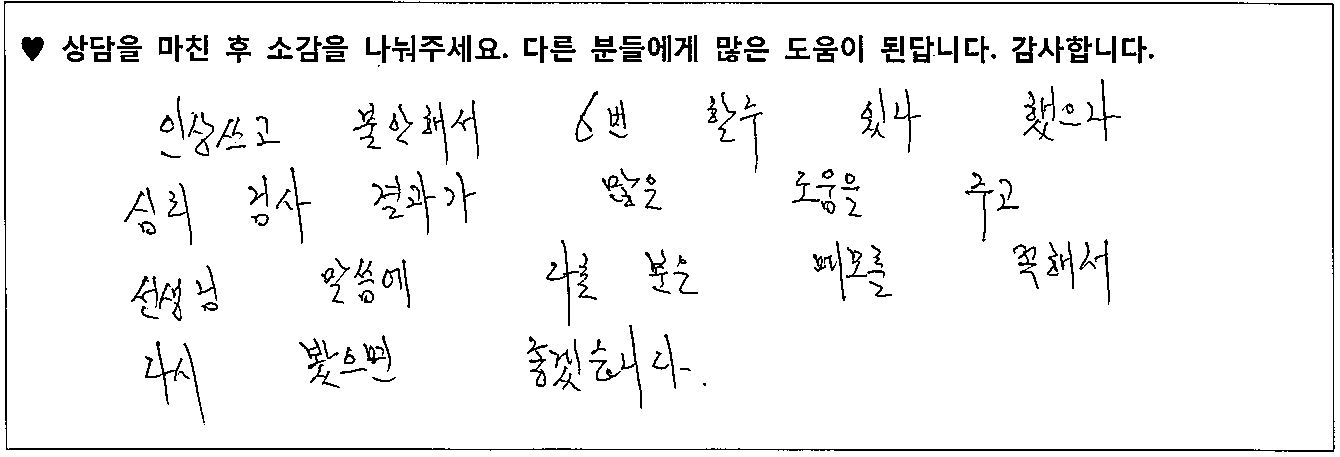 ♥ 상담을 마친 후 소감을 나눠주세요. 다른 분들에게 많은 도움이 된답니다. 감사합니다.
인상쓰고 불안해서 6번 할수 있나 했으나
심리 검사 결과가 많은 도움을 주고
선생님 말씀에 다른 분은 메모를 꼭해서
다시 봤으면 좋겠습니다.